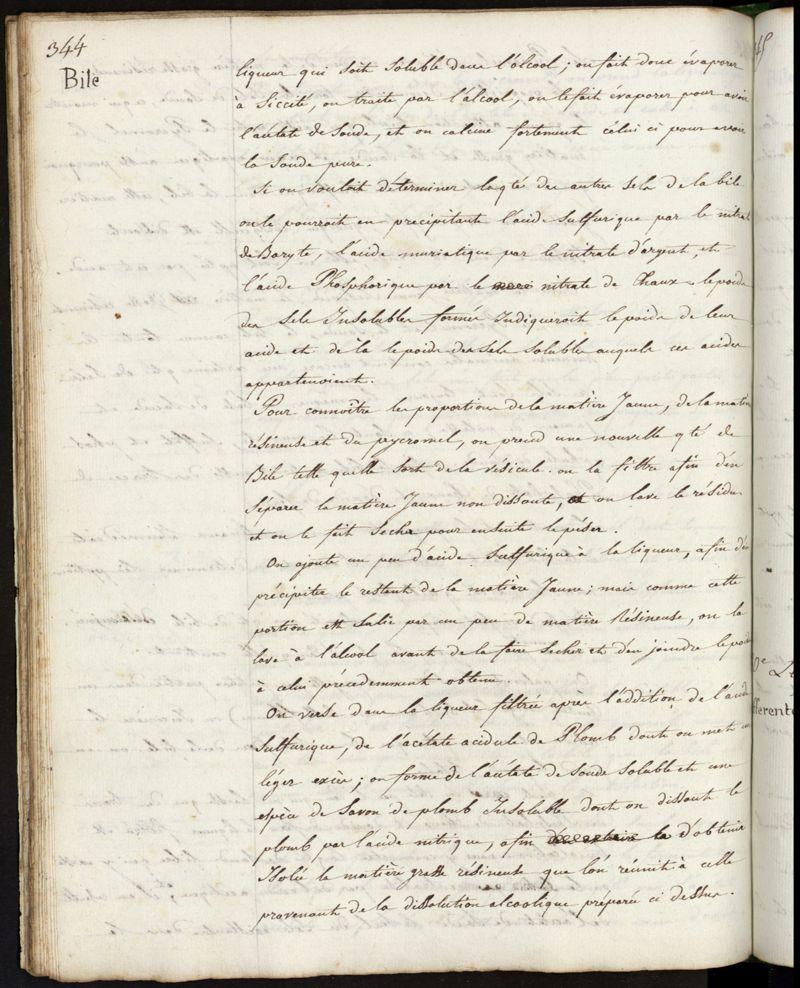 344
Bile
liqueur qui soit soluble dans l'alcool; on fait donc évaporer
à siccité, on traite par l'alcool, on le fait évaporer pour avoir
l'acétate de Soude, et on calcine fortement celui ci pour avoir
la Soude pure.
Si on vouloit déterminer la qté des autres sels de la bile
on le pourroit en précipitant l'acide sulfurique par le nitrate
de Baryte, l'acide muriatique par le nitrate d'argent, et
l'acide Phosphorique par le nitrate de Chaux. le poids
des sels Insolubles formés Indiqueroit le poids de leur
acide et de là le poids des sels solubles auquels ces acides
appartenoient.
Pour connoître les proportions de la matière Jaune, de la matière
résineuse et du pycromel, on prend une nouvelle qté de
Bile telle quelle sort de la vésicule. on la filtre afin d'en
séparer la matière Jaune non dissoute, on lave le résidu
et on le fait secher pour ensuite le péser.
On ajoute un peu d'acide sulfurique à la liqueur, afin d'en
précipiter le restant de la matière Jaune; mais comme cette
portion est salie par un peu de matière Résineuse, on la
lave à l'alcool avant de la faire secher et d'en joindre le poids
à celui précedemment obtenu.
On verse dans la liqueur filtrée après l'addition de l'acide
sulfurique, de l'acétate acidule de Plomb dont on met un
léger excès; on forme de l'acétate de soude soluble et une
espèce de savon de plomb Insoluble dont on dissout le
plomb par l'acide nitrique, afin d'obtenir
Isolée la matière grasse résineuse que l'on réunit à celle
provenant de la dissolution alcoolique préparée ci dessus.
fferente